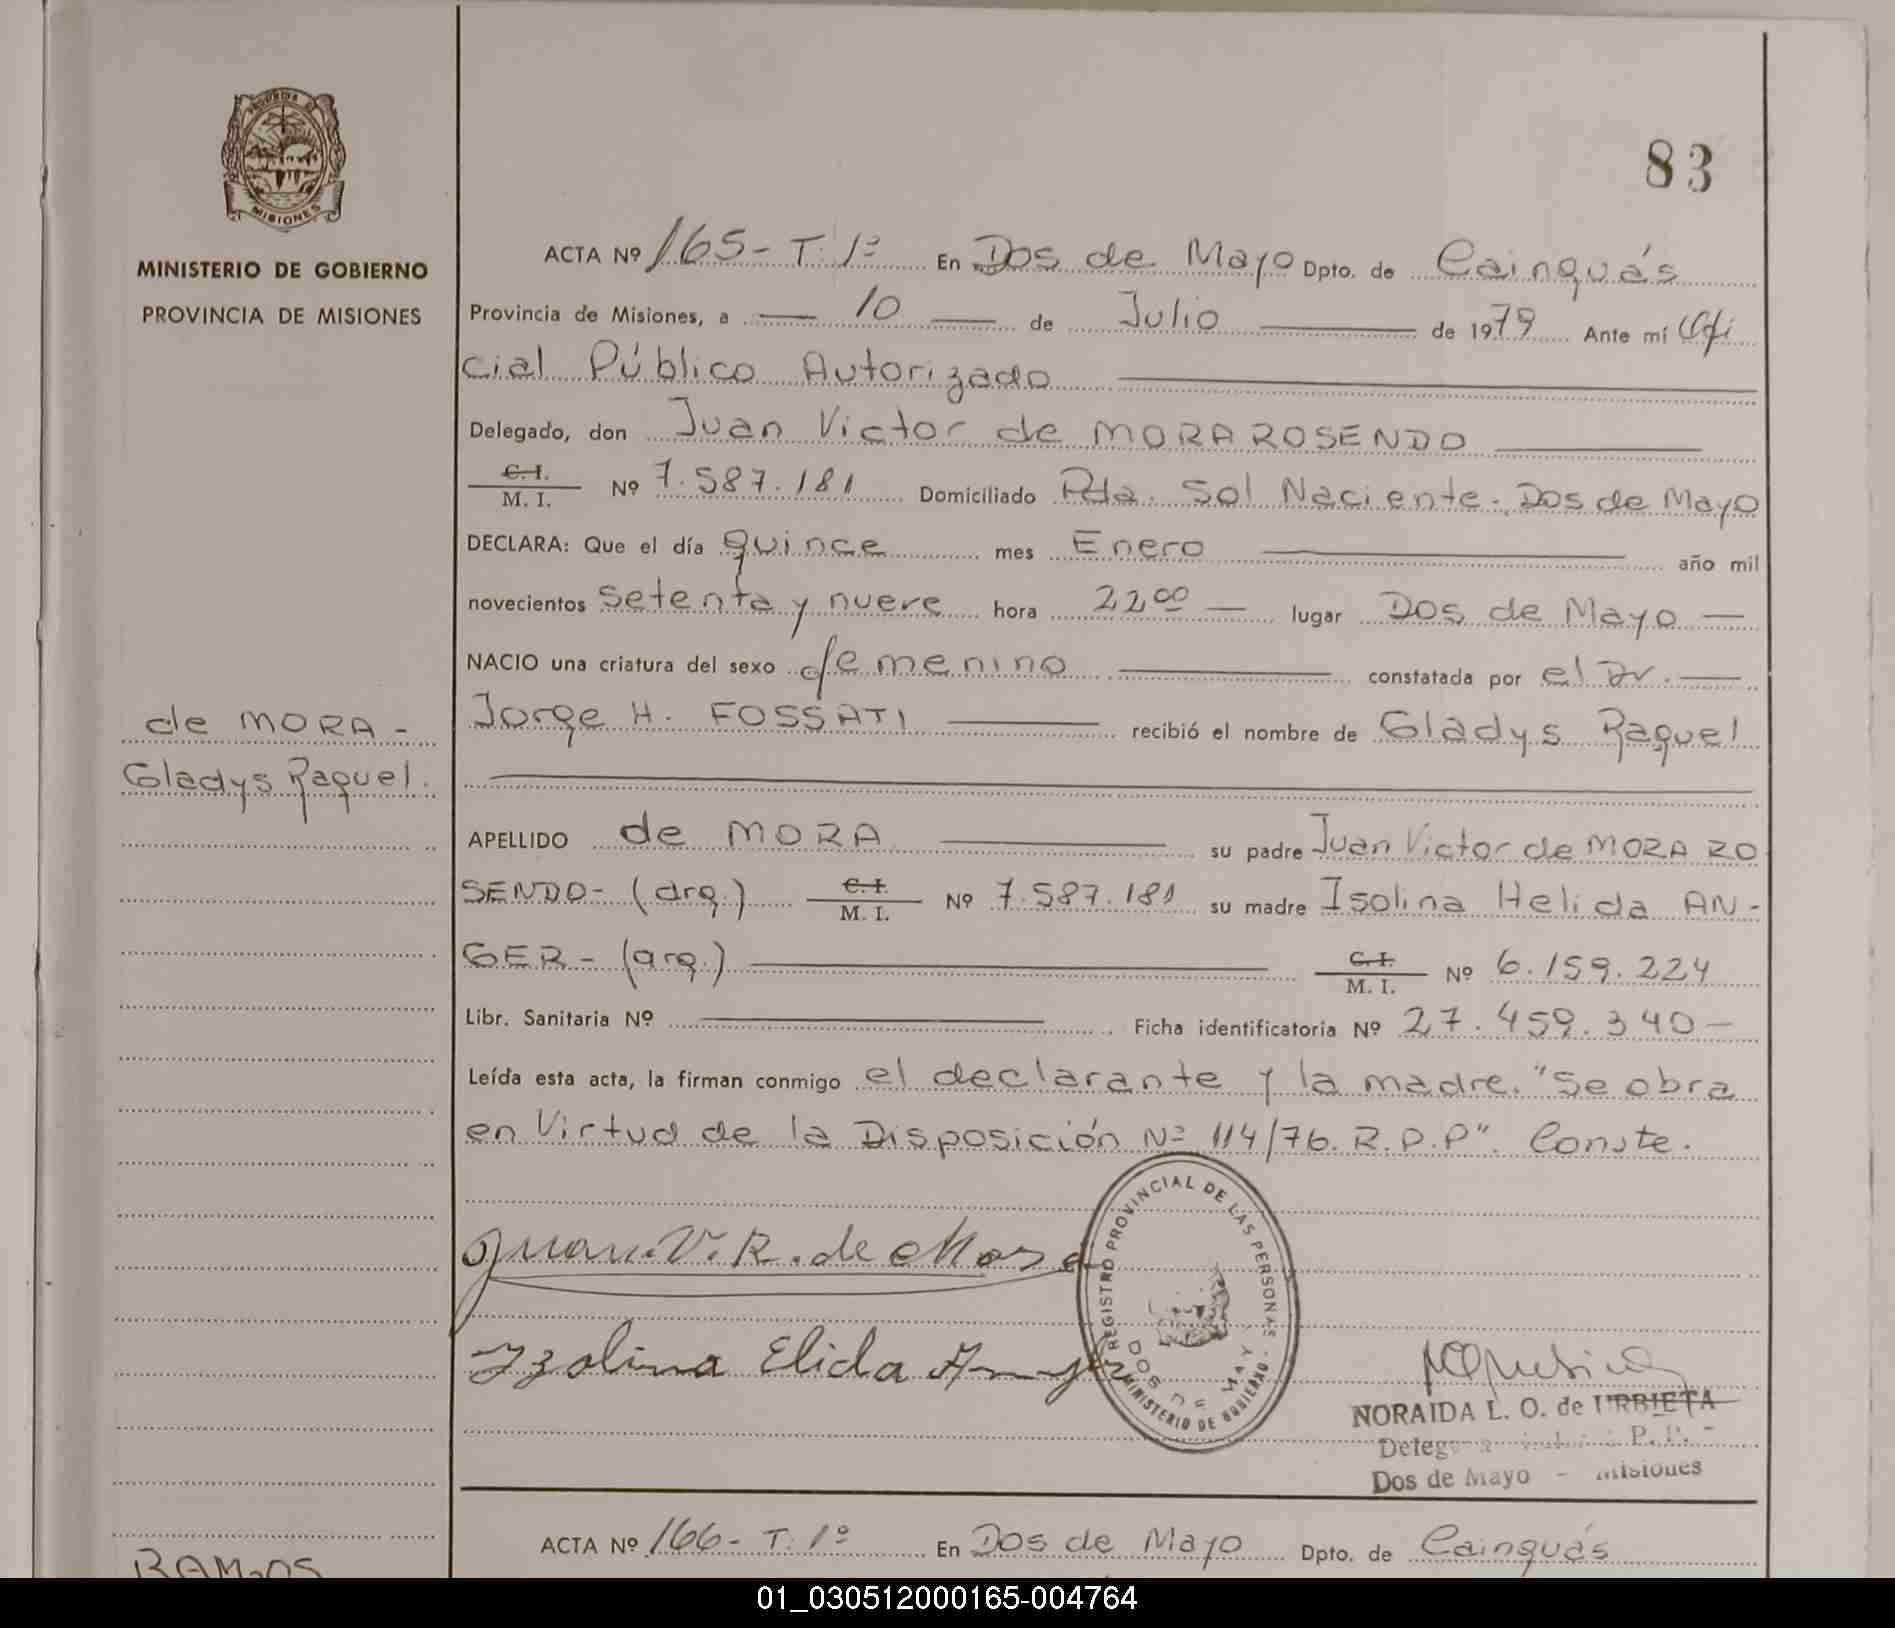 83
PROVINCIA DE
MISIONES
MINISTERIO DE GOBIERNO
PROVINCIA DE MISIONES
ACTA Nº 165- T. 1º En Dos de Mayo Dpto. de Cainguás
Provincia de Misiones, a 10 de Julio de 1979 Ante mí Ofi
cial Público Autorizado
Delegado, don Juan Victor de MORA ROSENDO
C. I.
M. I. Nº 7.587.181 Domiciliado Pda. Sol Naciente. Dos de Mayo
DECLARA: Que el día quince mes Enero año mil
novecientos setenta y nueve hora 22 00 lugar Dos de Mayo —
NACIO una criatura del sexo femenino constatada por el Dr. —
Jorge H. FOSSATI recibió el nombre de Gladys Raquel
de MORA -
Gladys Raquel.
APELLIDO de MORA su padre Juan Victor de MORA RO
SENDO- (arg.) C. I.
M. I. Nº 7.587.181 su madre Isolina Helida AN-
GER - (arg.) C. I.
M. I. Nº 6.159.224
Libr. Sanitaria Nº Ficha identificatoria Nº 27.459.340-
Leída esta acta, la firman conmigo el declarante y la madre. "Se obra
en Virtud de la Disposición Nº 114/76. R.P.P". Conste.
Juan.V.R. de Mora
Izolina Elida Anger
REGISTRO PROVINCIAL DE LAS PERSONAS -
MINISTERIO DE GOBIERNO -
DOS DE MAYO
NORAIDA L. O. de URBIETA
Dos de Mayo - Misiones
ACTA Nº 166- T. 1º En Dos de Mayo Dpto. de Cainguás
RAMOS
01_030512000165-004764